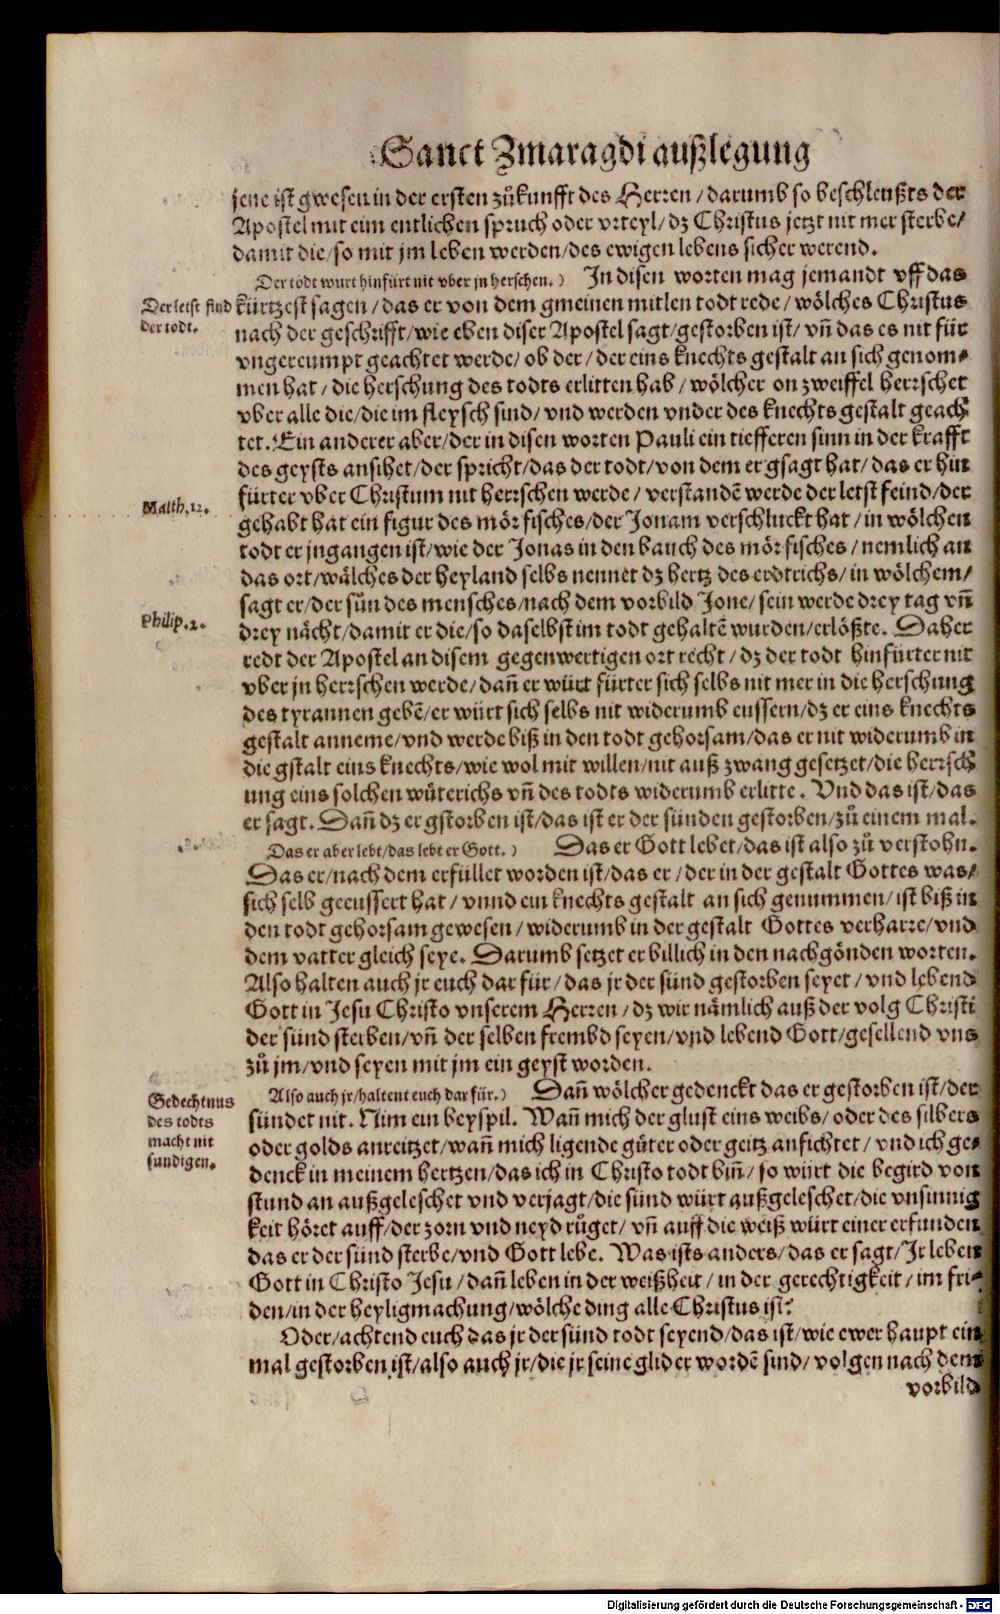 Sanct Zmaragdi außlegung
jene ist gwesen in der ersten zůkunfft des Herren / darumb so beschleußts der
Apostel mit eim entlichen spruch oder vrteyl / dz Christus jetzt nit mer sterbe /
damit die / so mit jm leben werden / des ewigen lebens sicher werend.
Der todt wurt hinfürt nit vber jn herschen. ) In disen worten mag jemandt vff das
Der letst find
der todt.
kürtzest sagen / das er von dem gmeinen mitlen todt rede / wölches Christus
nach der geschrifft / wie eben diser Apostel sagt / gestorben ist / vñ das es nit für
vngereumpt geachtet werde / ob der / der eins knechts gestalt an sich genom-
men hat / die herschung des todts erlitten hab / wölcher on zweiffel herrschet
vber alle die / die im fleysch sind / vnd werden vnder des knechts gestalt geach
tet. Ein anderer aber / der in disen worten Pauli ein tiefferen sinn in der krafft
des geysts ansihet / der spricht / das der todt / von dem er gsagt hat / das er hin
fürter vber Christum nit herrschen werde / verstandē werde der letst feind / der
Matth. 12.
gehabt hat ein figur des mörfisches / der Jonam verschluckt hat / in wölchen
todt er jngangen ist / wie der Jonas in den bauch des mörfisches / nemlich an
das ort / wälches der heyland selbs nennet dz hertz des erdtrichs / in wölchem /
sagt er / der sün des mensches / nach dem vorbild Jone / sein werde drey tag vñ
Philip. 2.
drey nächt / damit er die / so daselbst im todt gehaltē wurden / erlößte. Daher
redt der Apostel an disem gegenwertigen ort recht / dz der todt hinfürter nit
vber jn herrschen werde / dañ er würt fürter sich selbs nit mer in die herschung
des tyrannen gebē / er würt sich selbs nit widerumb eussern / dz er eins knechts
gestalt anneme / vnd werde biß in den todt gehorsam / das er nit widerumb in
die gstalt eins knechts / wie wol mit willen / nit auß zwang gesetzet / die herrsch
ung eins solchen wüterichs vñ des todts widerumb erlitte. Vnd das ist / das
er sagt. Dañ dz er gstorben ist / das ist er der sünden gestorben / zů einem mal.
Das er aber lebt / das lebt er Gott. ) Das er Gott lebet / das ist also zů verstohn.
Das er / nach dem erfüllet worden ist / das er / der in der gestalt Gottes was /
sich selb geeussert hat / vnnd ein knechts gestalt an sich genummen / ist biß in
den todt gehorsam gewesen / widerumb in der gestalt Gottes verharre / vnd
dem vatter gleich seye. Darumb setzet er billich in den nachgönden worten.
Also halten auch jr euch darfür / das jr der sünd gestorben seyet / vnd lebend
Gott in Jesu Christo vnserem Herren / dz wir nämlich auß der volg Christi
der sünd sterben / vñ der selben frembd seyen / vnd lebend Gott / gesellend vns
zů jm / vnd seyen mit jm ein geyst worden.
Gedechtnus
des todts
macht nit
sündigen.
Also auch jr / haltent euch dar für. ) Dañ wölcher gedenckt das er gestorben ist / der
sündet nit. Nim ein beyspil. Wañ mich der glust eins weibs / oder des silbers
oder golds anreitzet / wañ mich ligende güter oder geitz anfichtet / vnd ich ge-
denck in meinem hertzen / das ich in Christo todt biñ / so würt die begird von
stund an außgeleschet vnd verjagt / die sünd würt außgeleschet / die vnsinnig
keit höret auff / der zorn vnd neyd růget / vñ auff die weiß würt einer erfunden
das er der sünd sterbe / vnd Gott lebe. Was ists anders / das er sagt / Ir leben
Gott in Christo Jesu / dañ leben in der weißheit / in der gerechtigkeit / im fri-
den / in der heyligmachung / wölche ding alle Christus ist?
Oder / achtend euch das jr der sünd todt seyend / das ist / wie ewer haupt ein
mal gestorben ist / also auch jr / die jr seine glider wordē sind / volgen nach dem
vorbild
Digitalisierung gefördert durch die Deutsche Forschungsgemeinschaft - DFG